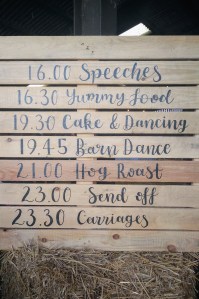 16.00 Speeches
16.30 Yummy food
19.30 Cake & Dancing
19.45 Barn Dance
21.00 Hog Roast
23.00 Send off
23.30 Carriages